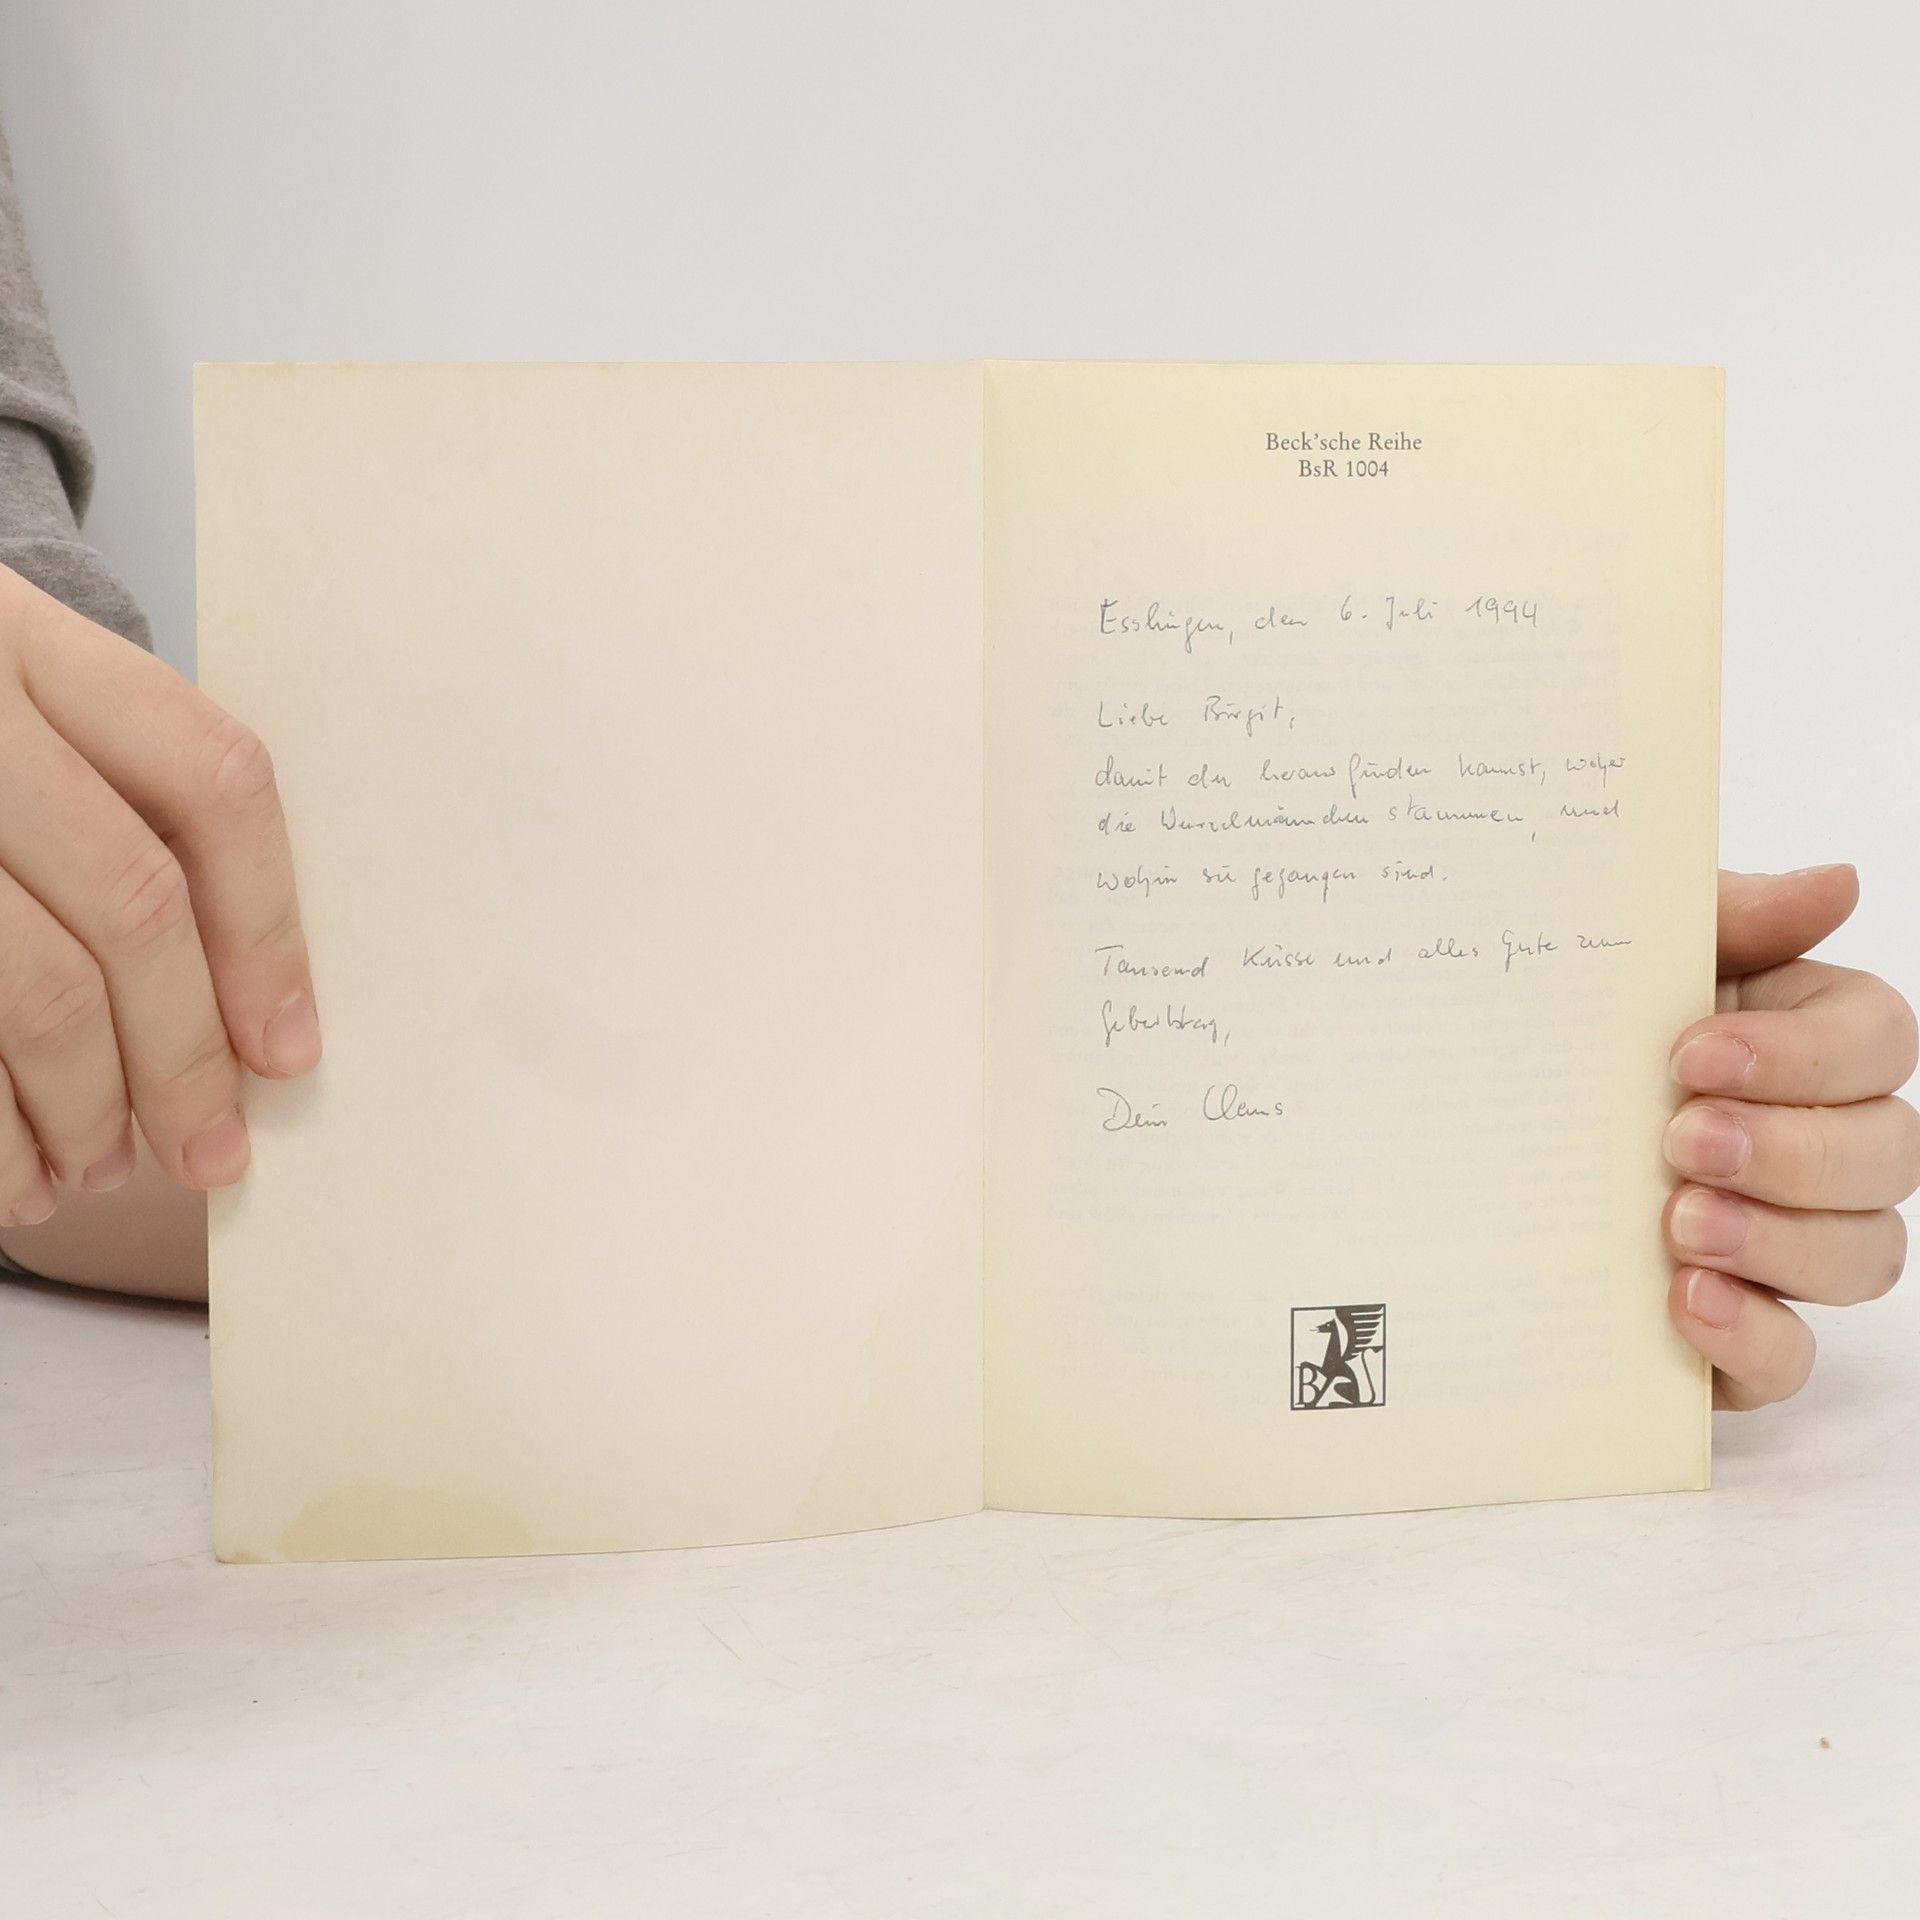 Beck'sche Reihe
BsR 1004
Esslingen, den 6. Juli 1994
Liebe Birgit,
damit du herausfinden kannst, woher
die Wurzelmännchen stammen, und
wohin sie gegangen sind.
Tausend Küsse und alles Gute zum
Geburtstag,
Dein Claus
BSR